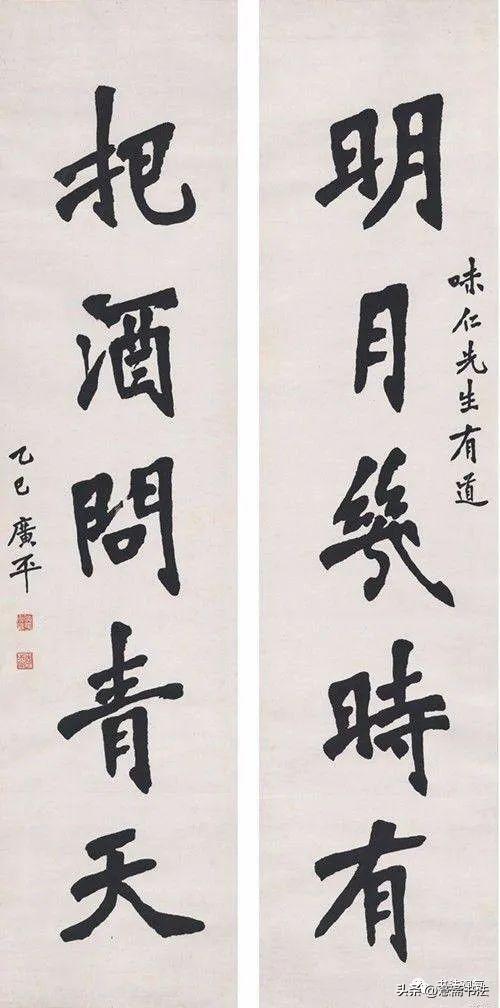 明月幾時有
味仁先生有道
把酒問青天
乙巳 廣平
头条@慧斋书法